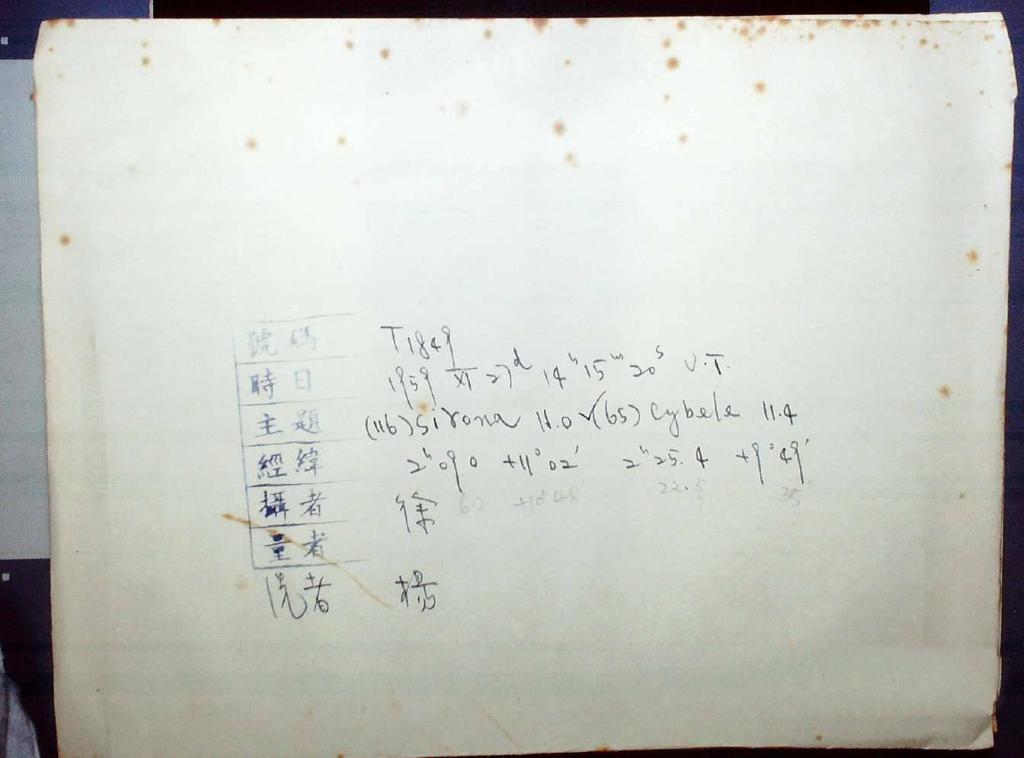 號碼 T1849
時日 1959 XI 27ᵈ 14ʰ15ᵐ20ˢ U.T.
主題 (116) Sirona 11.0 ✓(65) Cybele 11.4
經緯 2ʰ09.0 +11°02′ 2ʰ25.4 +9°49′
攝者 徐 6.2 +10°45′ 22.5 35
量者
洗者 楊